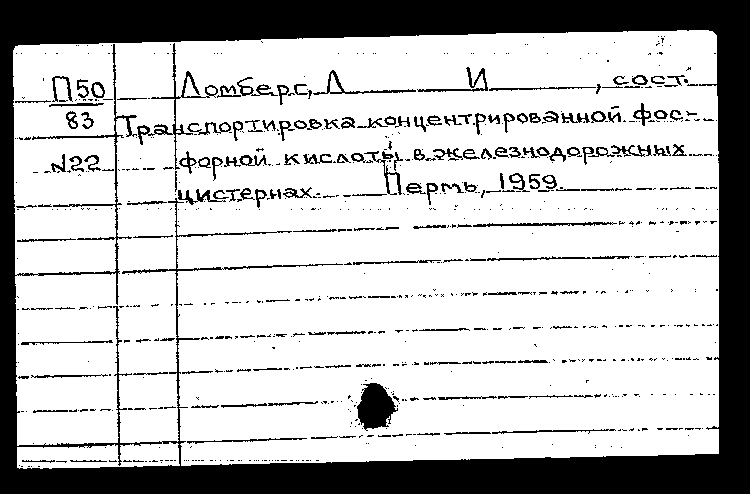 П50 Ломберг, Л И , сост.
83 Транспортировка концентрированной фос-
N22 форной кислоты в железнодорожных
цистернах. Пермь, 1959.